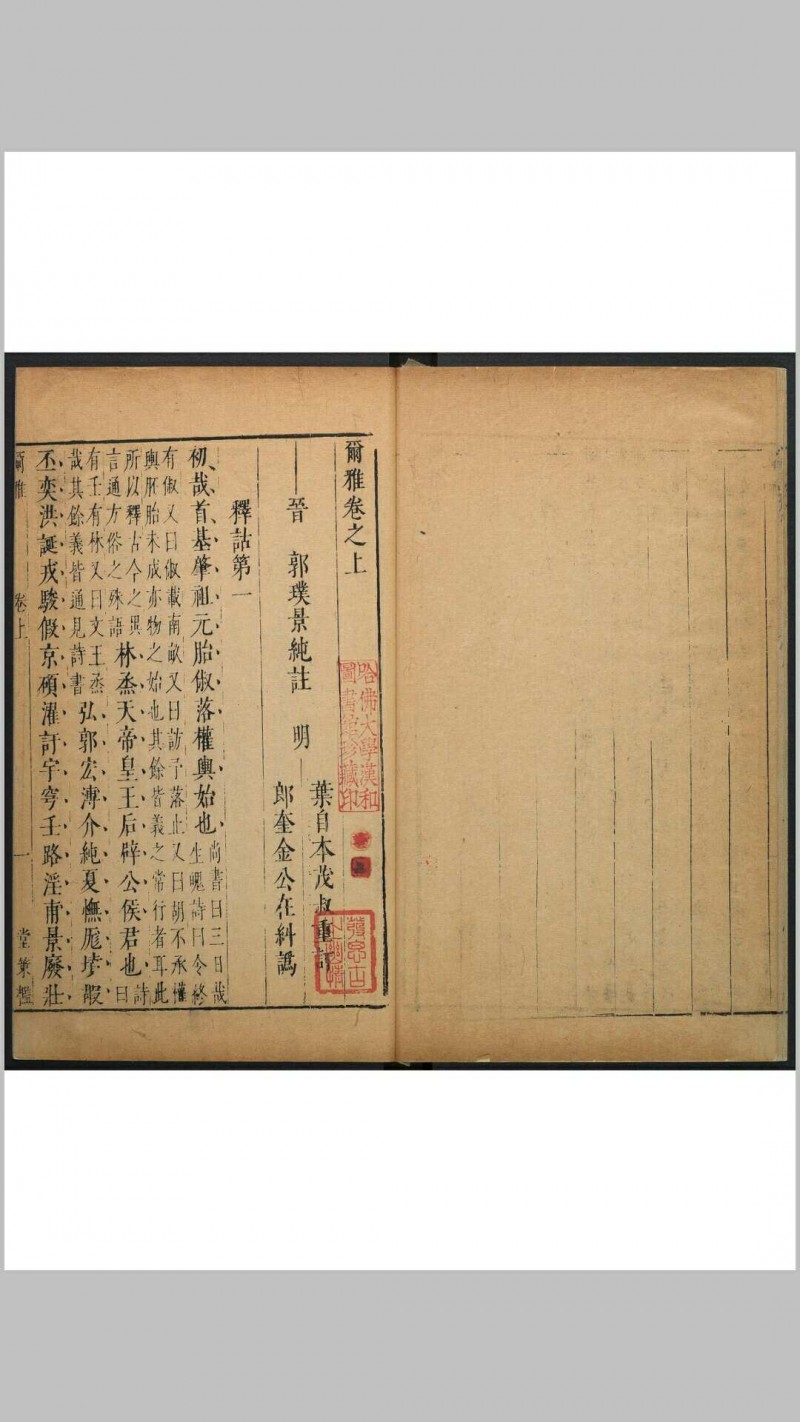 爾雅卷之上
晉 郭璞景純註 明
葉自本茂叔重訂
郎奎金公在糾譌
釋詁第一
初哉首基肇祖元胎俶落權輿始也尚書曰三月哉
生魄詩曰令終
有俶又曰俶載南畝又曰訪予落止又曰胡不承權
輿胚胎未成亦物之始也其餘皆義之常行者耳此
所以釋古今之異
言通方俗之殊語
林烝天帝皇王后辟公侯君也詩
曰
有壬有林又曰文王烝
哉其餘義皆通見詩書
弘郭宏溥介純夏幠厖墳嘏
丕奕洪誕戎駿假京碩濯訏宇穹壬路淫甫景廢壯
爾雅 卷上 一 堂策檻
哈佛大學漢和
圖書館珍藏印